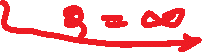 g = ∞